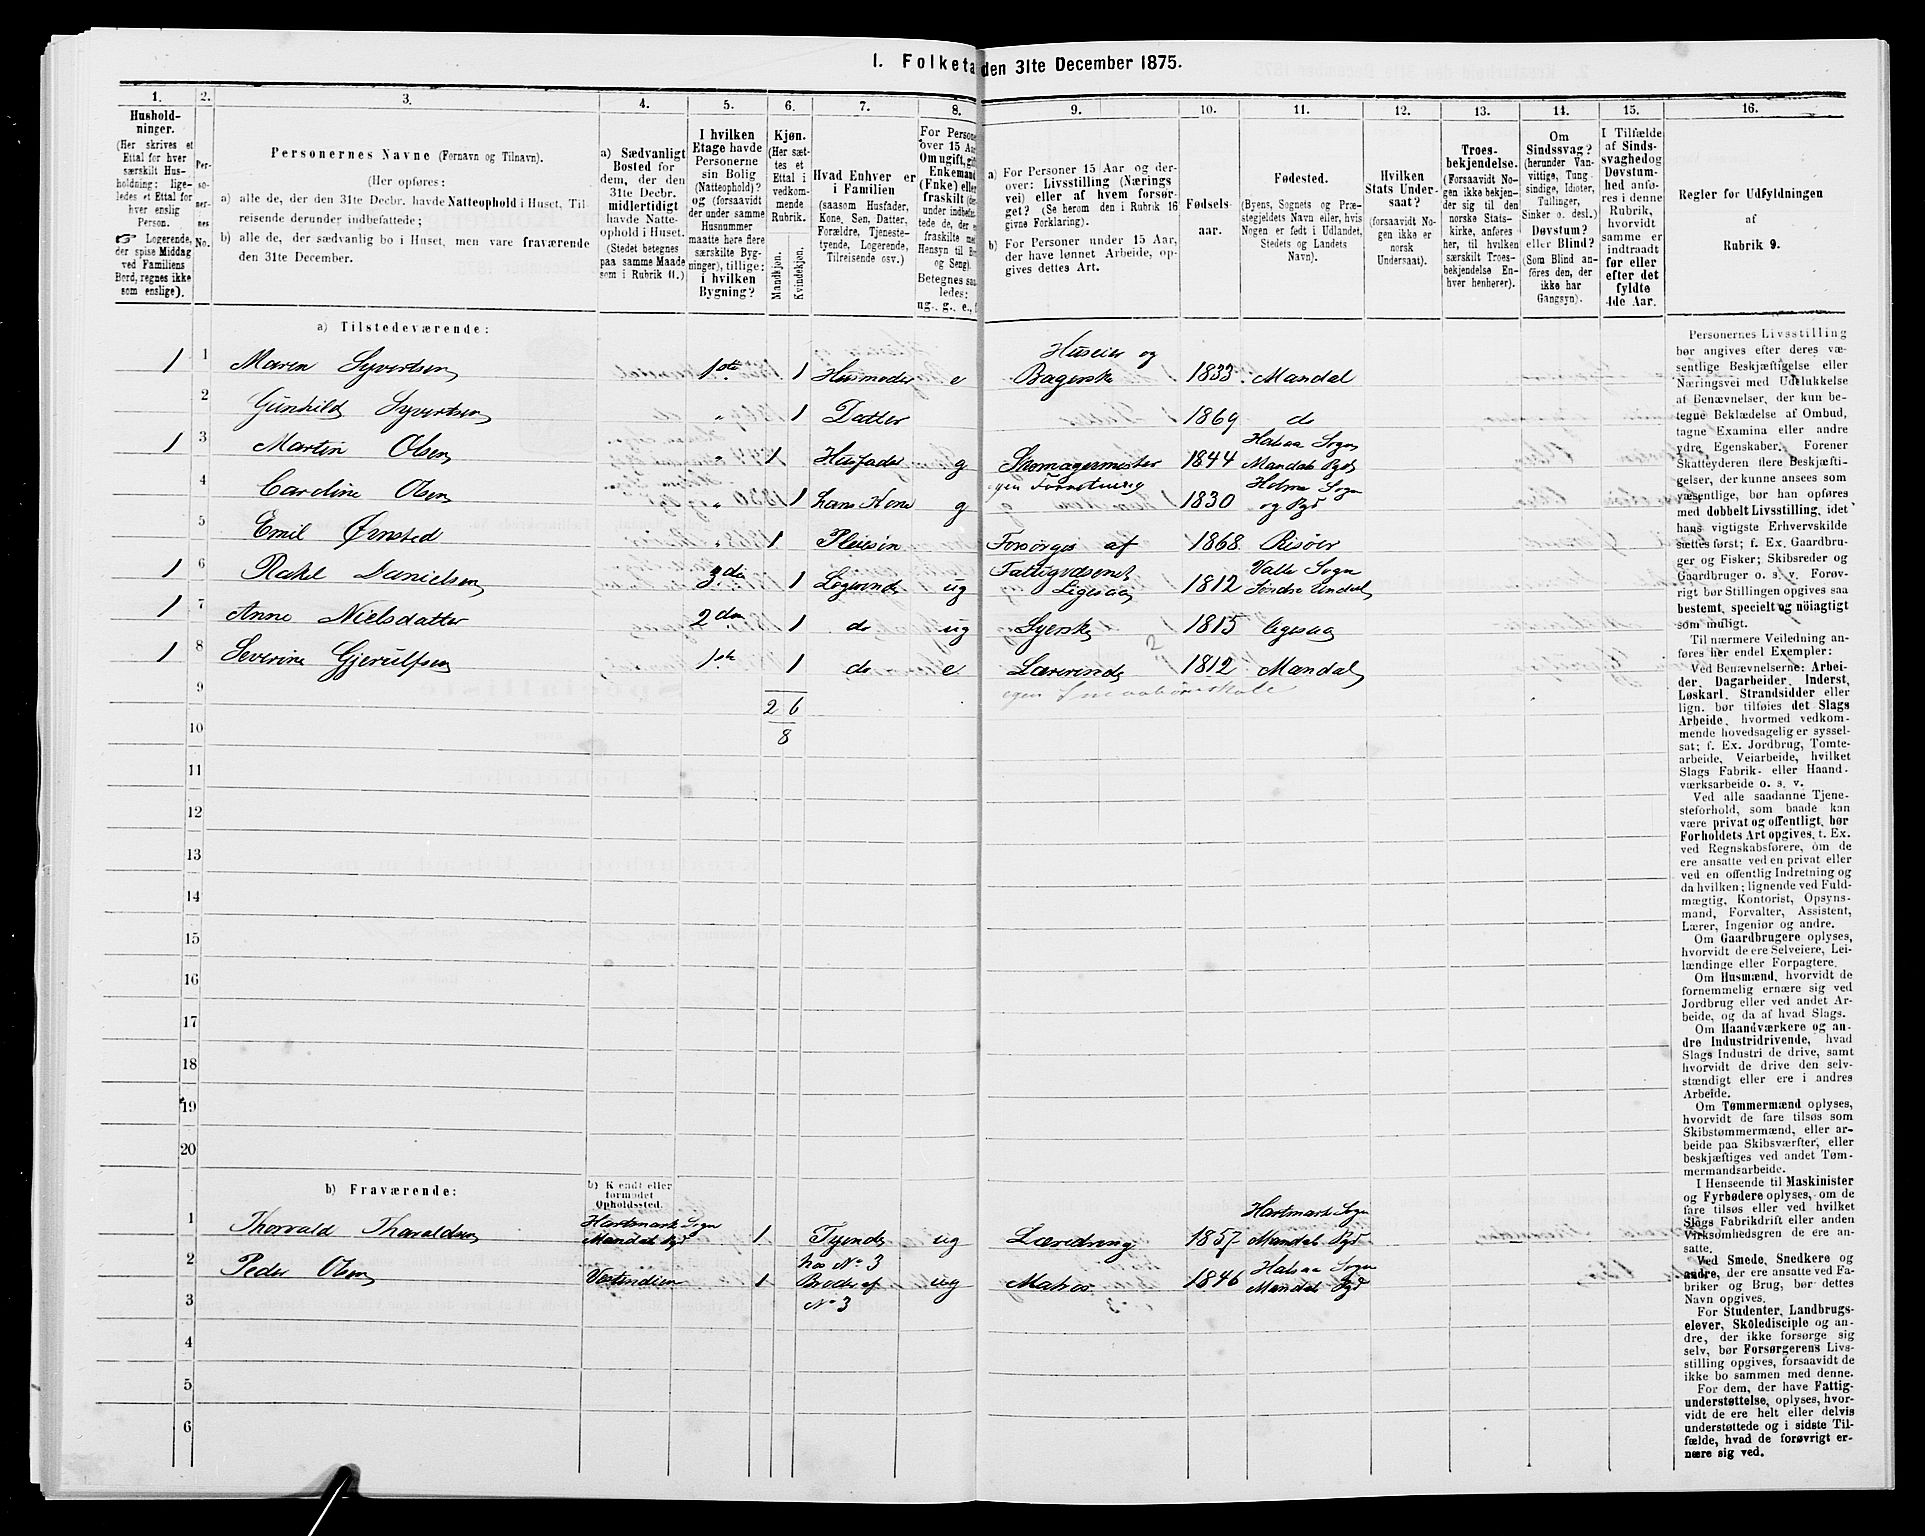 1. Folketa den 31te December 1875.
1. 2. 3. 4. 5. 6. 7. 8. 9. 10. 11. 12. 13. 14. 15. 16.
Hushold-
ninger.
(Her skrives et
Ettal for hver
særskilt Hus-
holdning; lige-
ledes et Ettal for
hver enslig
Person.
☞ Logerende,
der spise Middag
ved Familiens
Bord, regnes ikke
som enslige).
Per-
so-
ner-
nes
No.
Personernes Navne (Fornavn og Tilnavn).
(Her opføres:
a) alle de, der den 31te Decbr. havde Natteophold i Huset, Til-
reisende derunder indbefattede;
b) alle de, der sædvanlig bo i Huset, men vare fraværende
den 31te December.
a) Sædvanligt
Bosted for
dem, der den
31te Decbr.
midlertidigt
havde Natte-
ophold i Huset.
(Stedet betegnes
paa samme Maade
som i Rubrik 11.)
I hvilken
Etage havde
Personerne
sin Bolig
(Natteophold)?
og (forsaavidt
der under samme
Husnummer
maatte høre flere
særskilte Byg-
ninger), tillige:
i hvilken
Bygning?
Kjøn.
(Her sæt-
tes et
Ettal i
vedkom-
mende
Rubrik.
Mandkjøn.
Kvindekjøn.
Hvad Enhver er
i Familien
(saasom Husfader,
Kone, Søn, Datter,
Forældre, Tjeneste-
tyende, Logerende,
Tilreisende osv.)
For Persone
over 15 Aar
Om ugift, gift
Enkemand
(Enke) eller
fraskilt (der-
under indbefat-
tede de, der e
fraskilte med
Hensyn til Bo
og Seng).
Betegnes saa-
ledes:
ug., g., e.,
a) For Personer 15 Aar og der-
over: Livsstilling (Nærings
vei) eller af hvem forsør-
get? (Se herom den i Rubrik 16
givne Forklaring).
b) For Personer under 15 Aar,
der have lønnet Arbeide, op-
gives dettes Art.
Fødsels-
aar.
Fødested.
(Byens, Sognets og Præ-
stegjeldets Navn eller, hvis
Nogen er født i Udlandet,
Stedets og Landets
Navn).
Hvilken
Stats Under-
saat?
(forsaavidt No-
gen ikke er
norsk
Undersaat).
Troes-
bekjendelse.
(Forsaavidt No-
gen ikke bekjen-
der sig til den
norske Stats-
kirke, anføres
her, til hvilken
særskilt Troes-
bekjendelse En-
hver henhører).
Om
Sindssvag?
(herunder Van-
vittige, Tung
sindige, Idioter,
Tullinger,
Sinker o. desl.)
Døvstum?
eller Blind?
(Som Blind an-
føres den, der
ikke har
Gangsyn).
I Tilfælde
af Sinds-
svaghedog
Døvstum-
hed anfø-
res i denne
Rubrik,
hvorvidt
samme er
indtraadt
før eller
efter det
fyldte
4de Aar.
Regler for Udfyldningen
af
Rubrik 9.
a) Tilstedeværende:
1 1 Maren Syvertsen 1ste 1 Husmoder e Huseier og Bagerske 1833 Mandal
2 Gunhild Syvertsen " 1 Datter 1869 do
1 3 Martin Olsen " 1 Husfader g Skomagermester egen Forretning 1844 Halsaa Sogn Mandals Pgd
4 Caroline Olsen " 1 hans Kone g 1830 Holme Sogn og Pgd
5 Emil Ørnsted " 1 Pleiesøn Forsørges af 1868 Risøer
1 6 Rakel Danielsen 3die 1 Logerende ug Fattigvæsenet Ligesaa 1812 Valle Sogn Søndre Undal
1 7 Anne Nielsdatter 2den 1 do ug Syerske 1815 ligesaa
1 8 Severine Gjerulfsen 1ste 1 do e Lærerinde 1812 Mandal
egen Smaabørnskole
9
2 6
10
8
11
12
13
14
15
16
17
18
19
20
b) Fraværende:
b) Kendt eller
formodet
Opholdssted.
1 Thorvald Tharaldsen Hartmark Sogn Mandals Pgd 1 Tyende hos No 3 ug Læredreng 1857 Hartmark Sogn Mandals Pgd
2 Peder Olsen Vestindien 1 Broder af No 3 ug Matros 1846 Halsaa Sogn Mandals Pgd
3
4
5
6
Personernes Livsstilling
bør angives efter deres væ-
sentlige Beskjæftigelse eller
Næringsvei med Udelukkelse
af Benævnelser, der kun be-
tegne Beklædelse af Ombud,
tagne Examina eller andre
ydre Egenskaber. Forener
Skatteyderen flere Beskjæfti-
gelser, der kunne ansees som
væsentlige, bør han opføres
med dobbelt Livsstilling, idet
hans vigtigste Erhvervskilde
sættes først; f. Ex. Gaardbru-
ger og Fisker; Skibsreder og
Gaardbruger o. s. v. Forøv-
rigt bør Stillingen opgives saa
bestemt, specielt og nöiagtigt
som muligt.
Til nærmere Veiledning an-
føres her endel Exempler:
Ved Benævnelserne: Arbei-
der, Dagarbeider, Inderst,
Løskarl, Strandsidder eller
lign. bør tilføies det Slags
Arbeide, hvormed vedkom-
mende hovedsagelig er syssel-
sat; f. Ex. Jordbrug, Tomte-
arbeide, Veiarbeide, hvilket
Slags Fabrik- eller Haand-
værksarbeide o. s. v.
Ved alle saadanne Tjene-
steforhold, som baade kan
være privat og offentligt, bør
Forholdets Art opgives, t. Ex.
ved Regnskabsførere, om de
ere ansatte ved en privat eller
ved en offentlig Indretning og
da hvilken; lignende ved Fuld-
mægtig, Kontorist, Opsyns-
mand, Forvalter, Assistent,
Lærer, Ingeniør og andre.
Om Gaardbrugere oplyses,
hvorvidt de ere Selveiere, Lei-
lændinge eller Forpagtere.
Om Husmænd, hvorvidt de
fornemmelig ernære sig ved
Jordbrug eller ved andet Ar-
beide, og da af hvad Slags.
Om Haandværkere og an-
dre Industridrivende, hvad
Slags Industri de drive, samt
hvorvidt de drive den selv-
stændigt eller ere i andres
Arbeide.
Om Tømmermænd oplyses,
hvorvidt de fare tilsøs som
Skibstømmermænd, eller ar-
beide paa Skibsværfter, eller
beskjæftiges ved andet Tøm-
mermandsarbeide.
I Henseende til Maskinister
og Fyrbødere oplyses, om de
fare tilsøs eller ved hvilket
Slags Fabrikdrift eller anden
Virksomhedsgren de ere an-
satte.
Ved Smede, Snedkere og
andre, der ere ansatte ved Fa-
briker og Brug, bør dettes
Navn opgives.
For Studenter, Landbrugs-
elever, Skoledisciple og an-
dre, der ikke forsørge sig
selv, bør Forsørgerens Livs-
stilling opgives, forsaavidt de
ikke bo sammen med denne.
For dem, der have Fattig-
understøttelse, oplyses, hvor-
vidt de ere helt eller delvis
understøttede og i sidste Til-
fælde, hvad de forøvrigt er-
nære sig ved.